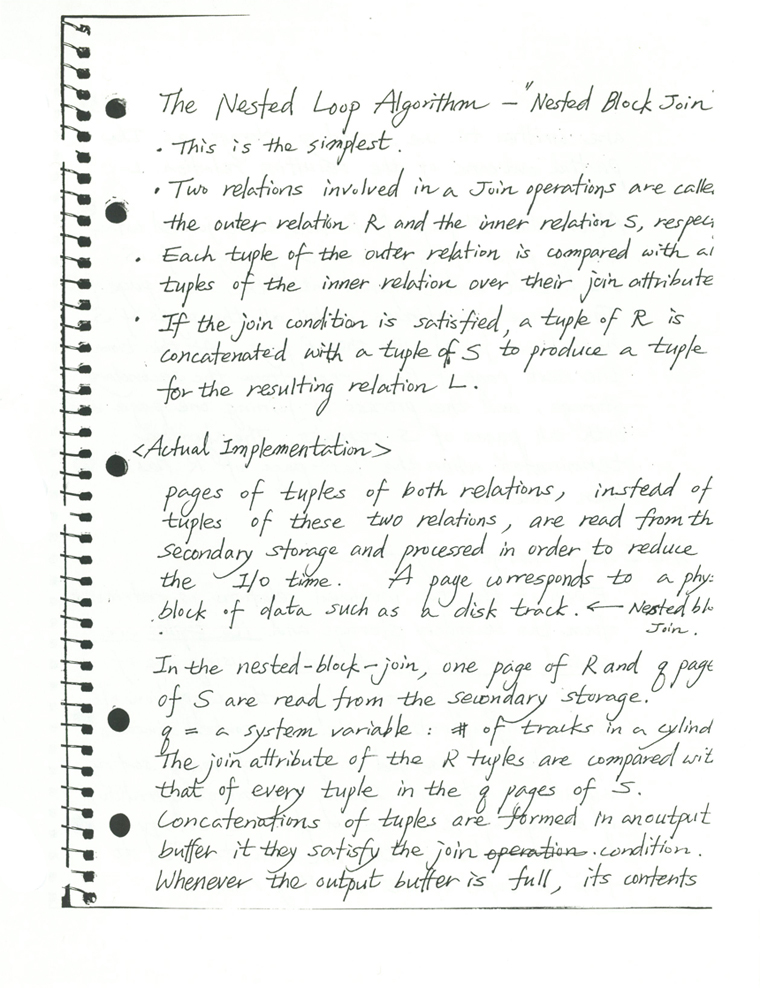 The Nested Loop Algorithm – "Nested Block Join
· This is the simplest.
· Two relations involved in a Join operations are calle
the outer relation R and the inner relation S, respec
· Each tuple of the outer relation is compared with al
tuples of the inner relation over their join attribute
· If the join condition is satisfied, a tuple of R is
concatenated with a tuple of S to produce a tuple
for the resulting relation L.
<Actual Implementation>
pages of tuples of both relations, instead of
tuples of these two relations, are read from th
secondary storage and processed in order to reduce
the I/O time. A page corresponds to a phys
block of data such as a disk track. ← Nested blo
Join.
In the nested-block-join, one page of R and q page
of S are read from the secondary storage.
q = a system variable : # of tracks in a cylind
The join attribute of the R tuples are compared wit
that of every tuple in the q pages of S.
Concatenations of tuples are formed in an output
buffer it they satisfy the join operation. condition.
Whenever the output buffer is full, its contents